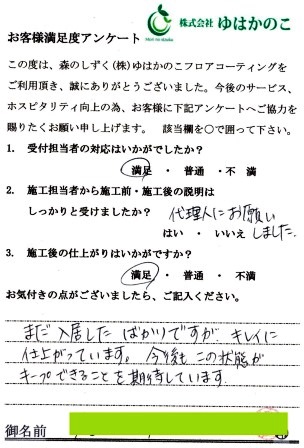 株式会社 ゆはかのこ
Mori no shizuku
お客様満足度アンケート
この度は、森のしずく(株)ゆはかのこフロアコーティングを
ご利用頂き、誠にありがとうございました。今後のサービス、
ホスピタリティ向上の為、お客様に下記アンケートへご協力を
賜りたくお願い申し上げます。 該当欄を○で囲って下さい。
1. 受付担当者の対応はいかがでしたか?
満足 ・ 普通 ・不 満
2. 施工担当者から施工前・施工後の説明は
しっかりと受けましたか? 代理人にお願い
はい ・ いいえ しました.
3. 施工後の仕上がりはいかがですか?
満足 ・ 普通 ・ 不満
お気付きの点がございましたら、ご記入ください。
まだ入居したばかりですが、キレイに
仕上がっています。今後も この状態が
キープできることを期待しています.
御名前